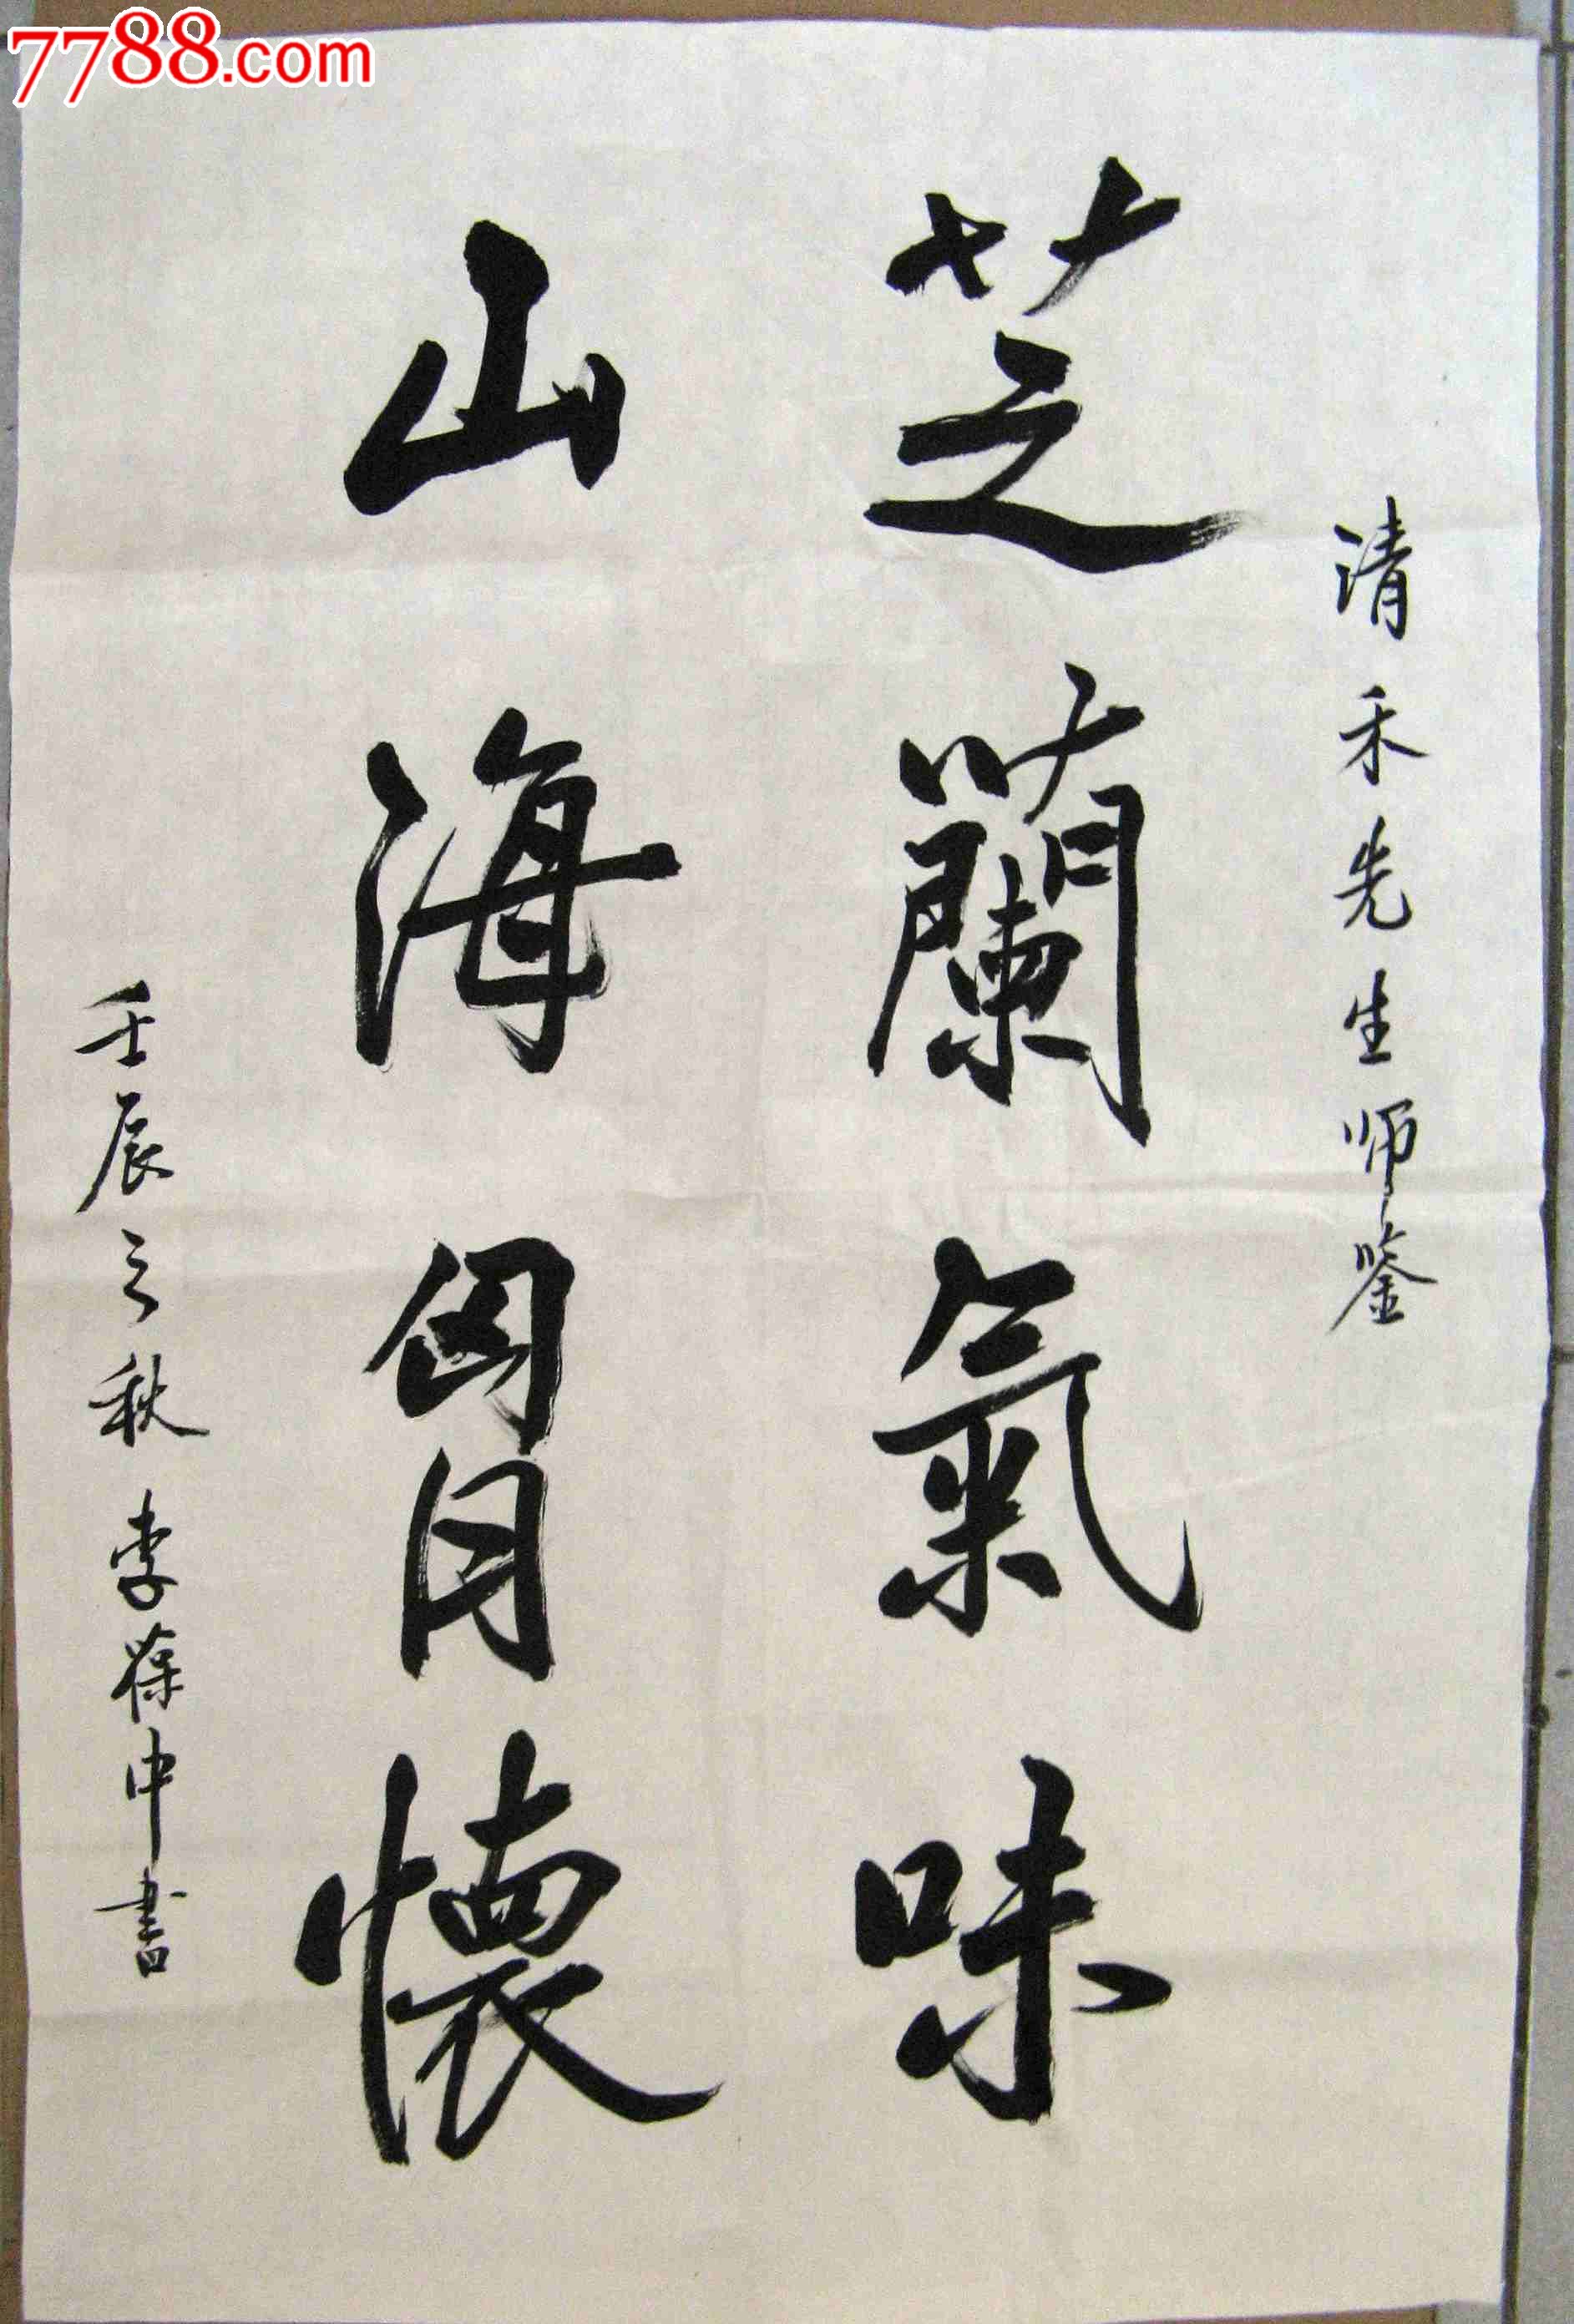 7788.com
清禾先生师鉴
芝蘭氣味
山海胷懷
壬辰之秋 李葆中書